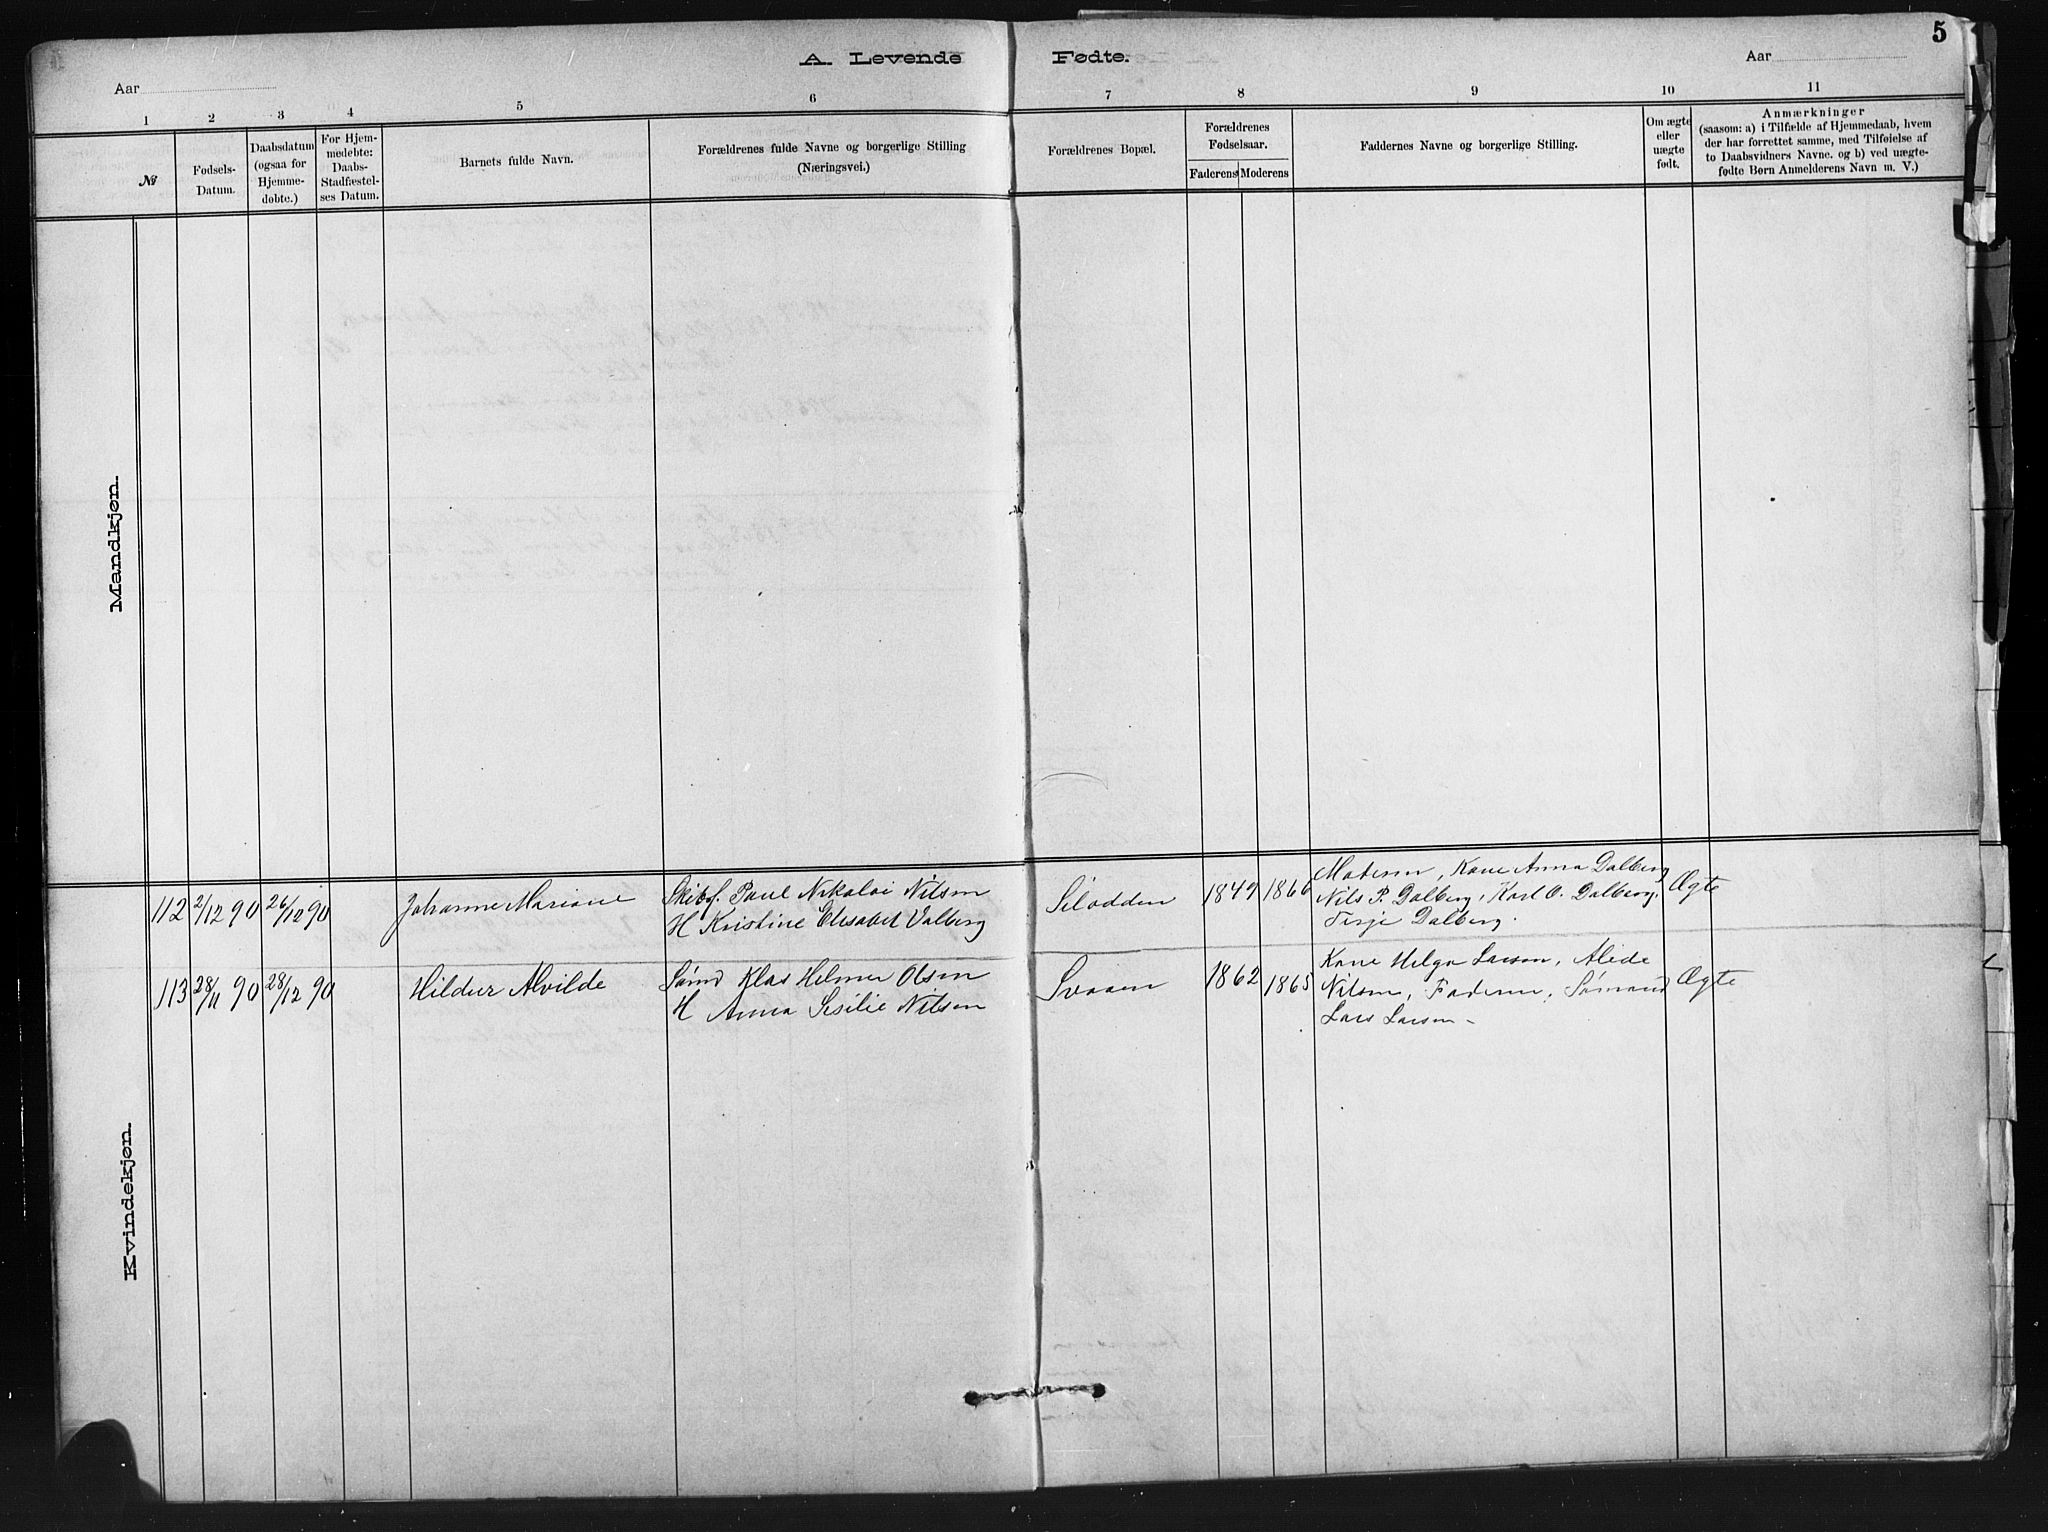 5
A. Levende Fødte.
Aar
Aar
1 2 3 4 5 6 7 8 9 10 11
№
Fødsels-
Datum.
Daabsdatum
(ogsaa for
Hjemme-
døbte.)
For Hjem-
medøbte:
Daabs-
Stadfæstel-
ses Datum.
Barnets fulde Navn.
Forældrenes fulde Navne og borgerlige Stilling
(Næringsvei.)
Forældrenes Bopæl.
Forældrenes
Fødselsaar.
Faderens Moderens
Faddernes Navne og borgerlige Stilling.
Om ægte
eller
uægte
født.
Anmærkninger
(saasom: a) i Tilfælde af Hjemmedaab, hvem
der har forrettet samme, med Tilføielse af
to Daabsvidners Navne. og b) ved uægte-
fødte Børn Anmelderens Navn m. V.)
Mandkjøn.
Kvindekjøn.
112 2/12 90 26/12 90 Johanne Mariane
Skibsf. Paul Nikolai Nilsen
H Kristine Elisabet Valberg
Silodden 1849 1866
Moderen, Kone Anna Dalberg
Nils P. Dalberg, Karl O. Dalberg,
Terje Dalberg.
Ægte
113 28/11 90 28/12 90 Hildur Alvilde
Sømd Klas Helmer Olsen
H Anna Sesilie Nilsen
Svaaen 1862 1865
Kone Helga Larsen, Alide
Nilsen, Faderen, Sømand
Lars Larsen
Ægte